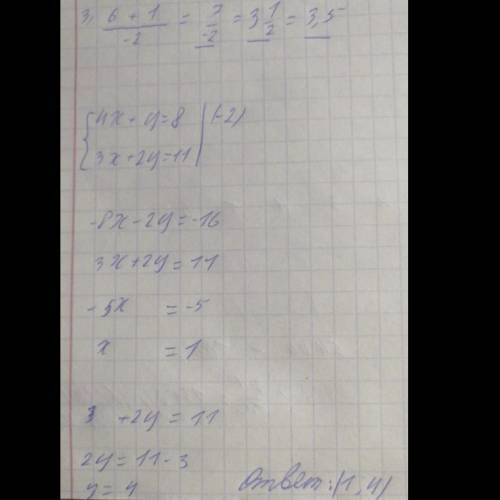 3, (6 + 1)/-2 = 7/-2 = 3 1/2 = 3,5
{ 4x + y = 8 | (-2)
3x + 2y = 11
-8x - 2y = -16
3x + 2y = 11
-5x = -5
x = 1
3 + 2y = 11
2y = 11 - 3
y = 4 Ответ: (1, 4)